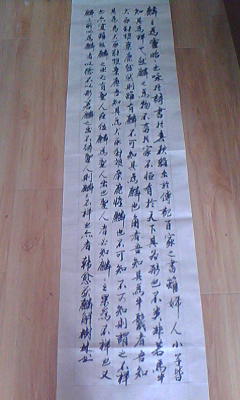 麟之為靈昭昭也詠於詩書於春秋雜出於傳記百家之書雖婦人小子皆
知其為祥也然麟之為物不畜於家不恒有於天下其為形也不類非若馬牛
犬豕豺狼麋鹿然然則雖有麟不可知其為麟也角者吾知其為牛鬣者吾知
其為馬犬豕豺狼麋鹿吾知其為犬豕豺狼麋鹿惟麟也不可知不可知則謂之不祥
也亦宜雖然麟之出必有聖人在乎位麟為聖人出也聖人者必知麟麟之果不為不祥也又
麟之所以為麟者以德不以形若麟之出不待聖人則麟不祥也亦宜韓愈獲麟解樹林書